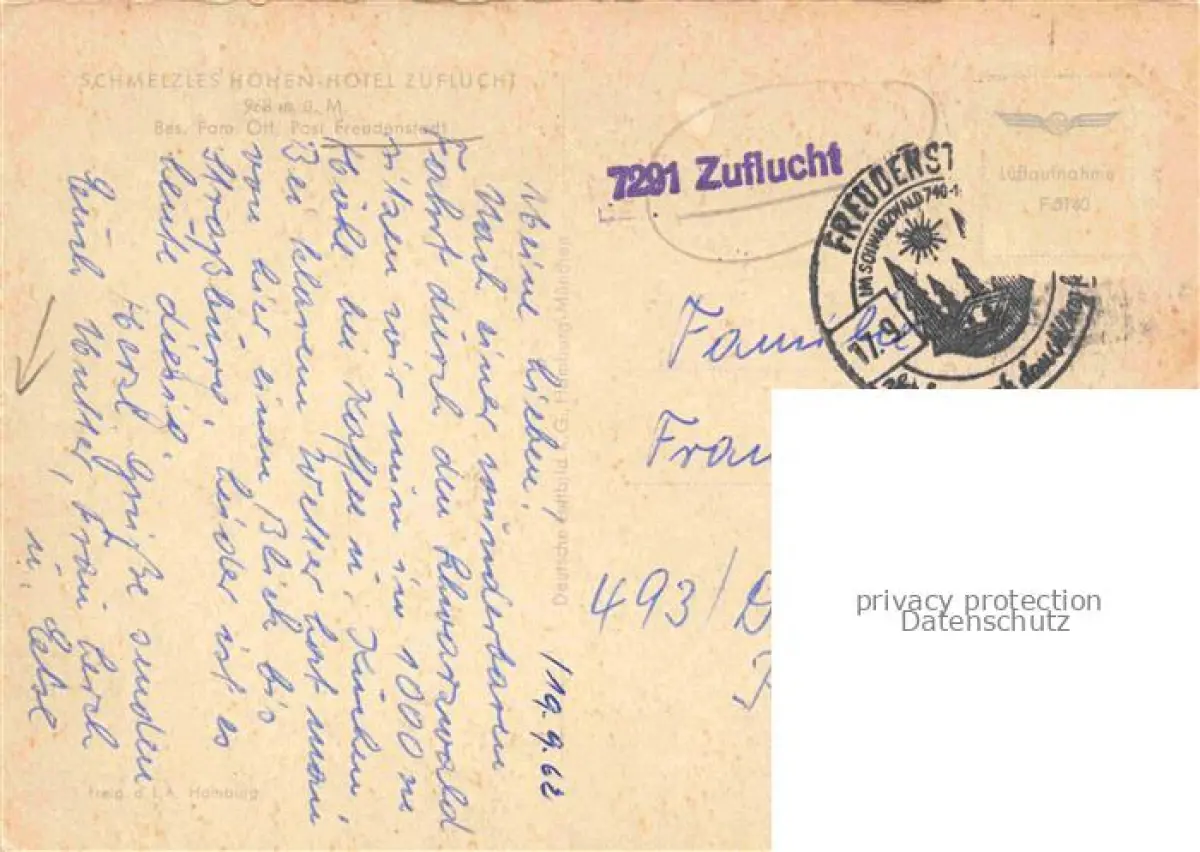 SCHMELZLES HÖHEN-HOTEL ZUFLUCHT
968 m ü. M.
Bes. Fam. Ott, Post Freudenstadt
Meine Lieben!
Nach einer wunderbaren
Fahrt durch den Schwarzwald
sitzen wir nun in 1000 m
Höhe bei Kaffee u. Kuchen!
Bei klarem Wetter hat man
von hier einen Blick bis
Straßburg. Leider ist es
heute diesig.
Herzl. Grüße senden
Euch Mutter, Frau
u.
/19.9.62
Freig. d. L. A. Hamburg
Deutsche Luftbild K.G., Hamburg/München
7291 Zuflucht
FREUDENST
IM SCHWARZWALD 740-1
17.9
Luftaufnahme
Familie
Fran
493/D
privacy protection
Datenschutz